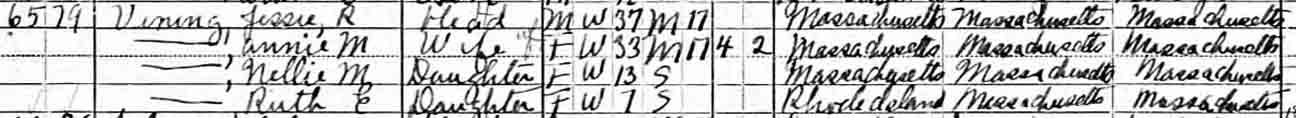 65 79 Vining, Jessie, R Head M W 37 M 17 Massachusetts Massachusetts Massachusetts
—, Annie M Wife F W 33 M 17 4 2 Massachusetts Massachusetts Massachusetts
—, Nellie M Daughter F W 13 S Massachusetts Massachusetts Massachusetts
—, Ruth E Daughter F W 7 S Rhode Island Massachusetts Massachusetts